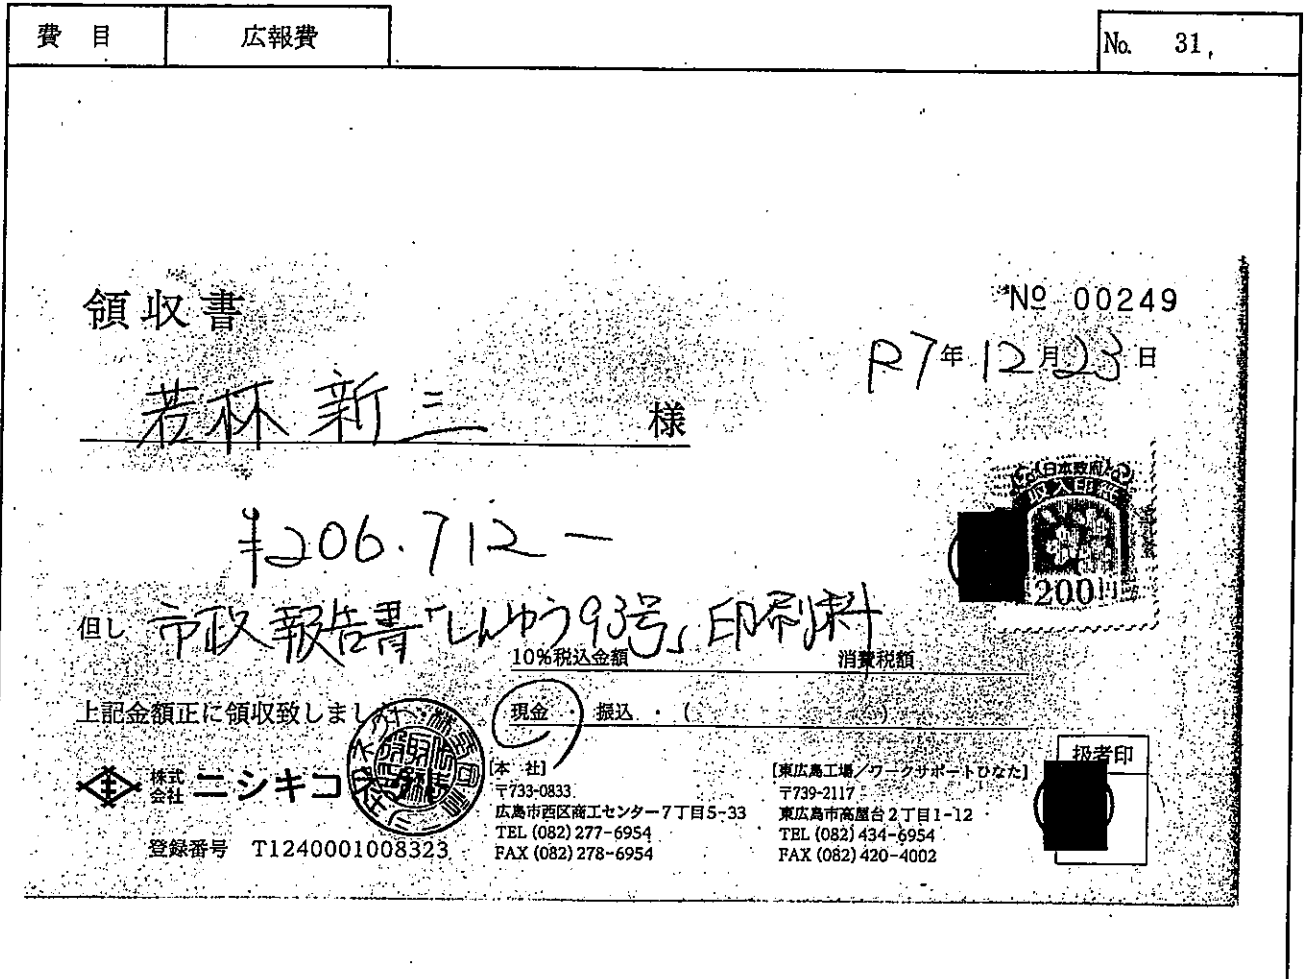 費目 広報費 No. 31,
領収書
№ 00249
R7年12月23日
若林 新三 様
¥206.712-
但し 市政報告書「しんゆう93号」印刷料
10%税込金額 消費税額
上記金額正に領収致しました
現金 ・ 振込 ・ ( )
日本政府
収入印紙
200円
株式会社 ニシキコ
登録番号 T1240001008323
[本 社]
〒733-0833
広島市西区商工センター7丁目5-33
TEL (082) 277-6954
FAX (082) 278-6954
[東広島工場/ワークサポートひなた]
〒739-2117
東広島市高屋台2丁目1-12
TEL (082) 434-6954
FAX (082) 420-4002
扱者印